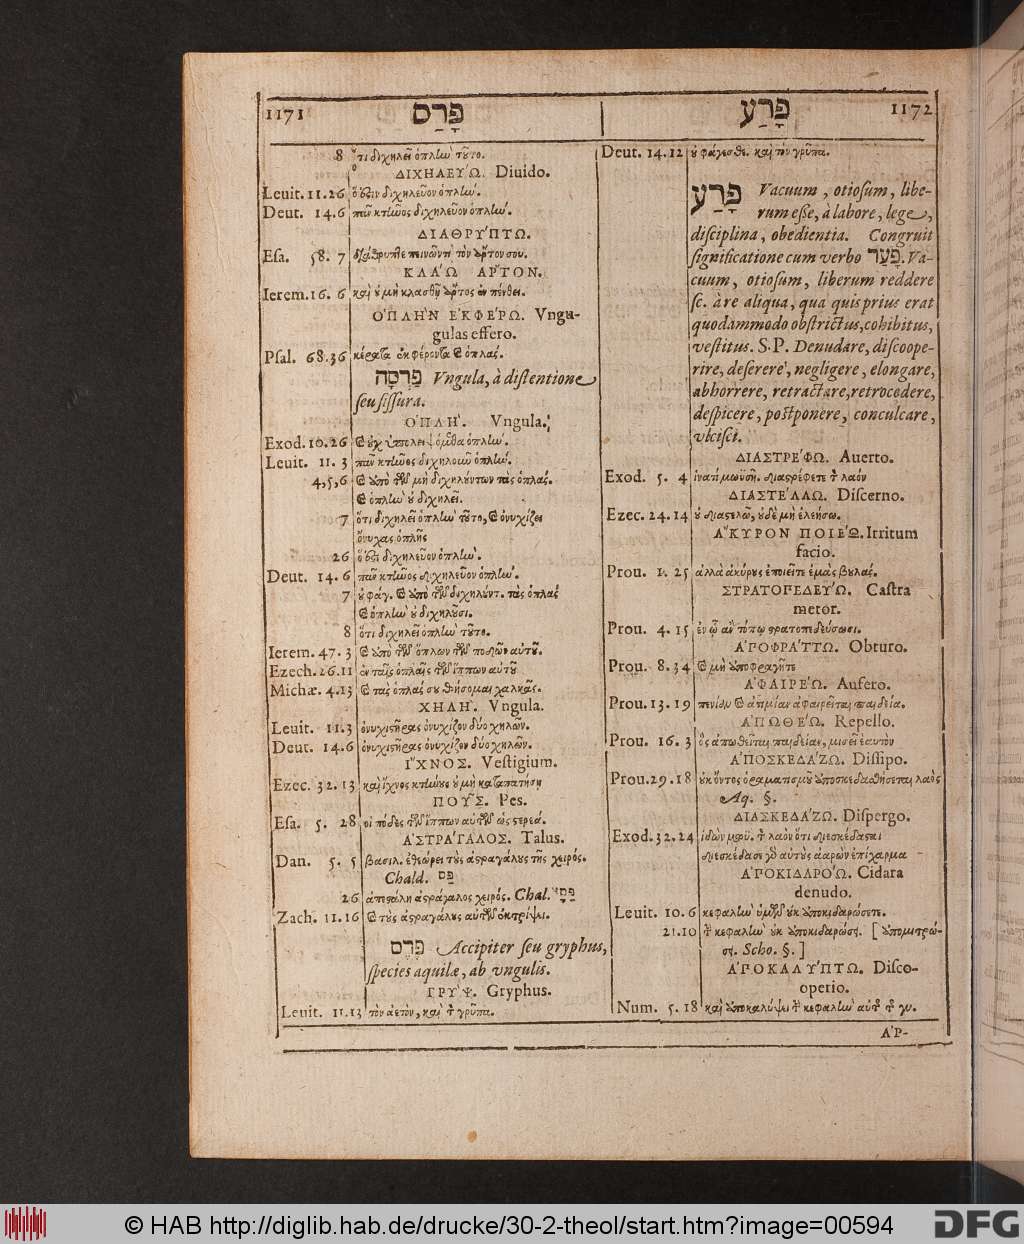 1171 פָּרַס
8 ὅτι διχηλεῖ ὁπλὴν τοῦτο.
ΔΙΧΗΛΕΎΩ. Diuido.
Leuit. 11.26 διχηλεῦον ὁπλὴν.
Deut. 14.6 πᾶν κτῆνος διχηλεῦον ὁπλὴν.
ΔΙΑΘΡΎΠΤΩ.
Esa. 58. 7 διάθρυπτε πεινῶντι τὸν ἄρτον σου.
ΚΛΆΩ ΑΡ́ΤΟΝ.
Ierem. 16. 6 καὶ οὐ μὴ κλασθῇ ἄρτος ἐν πένθει.
ὉΠΛῊΝ ΕΚΦΈΡΩ. Vngu-
gulas effero.
Psal. 68.36 κέρατα ἐκφέροντα καὶ ὁπλάς.
פַּרְסָה Vngula, à distentione
seu fissura.
ὉΠΛΉ. Vngula.
Exod. 10.26 καὶ οὐχ ὑπολειψόμεθα ὁπλὴν.
Leuit. 11. 3 πᾶν κτῆνος διχηλοῦν ὁπλὴν.
4,5,6 καὶ ἀπὸ τῶν μὴ διχηλούντων τὰς ὁπλάς.
καὶ ὁπλὴν οὐ διχηλεῖ.
7 ὅτι διχηλεῖ ὁπλὴν τοῦτο, καὶ ὀνυχίζει
ὄνυχας ὁπλῆς
26 διχηλεῦον ὁπλὴν.
Deut. 14. 6 πᾶν κτῆνος διχηλεῦον ὁπλὴν.
7 οὐ φάγ. καὶ ἀπὸ τῶν διχηλούντ. τὰς ὁπλὰς
καὶ ὁπλὴν οὐ διχηλοῦσι.
8 ὅτι διχηλεῖ ὁπλὴν τοῦτο.
Ierem. 47. 3 καὶ ἀπὸ τῶν ὅπλων τῶν ποδῶν αὐτοῦ.
Ezech. 26.11 ἐν ταῖς ὁπλαῖς τῶν ἵππων αὐτοῦ
Michæ. 4.13 καὶ τὰς ὁπλάς σου θήσομαι χαλκᾶς.
ΧΗΛΉ. Vngula.
Leuit. 11.3 ὀνυχιστῆρας ὀνυχίζον δύο χηλῶν.
Deut. 14.6 ὀνυχιστῆρας ὀνυχίζον δύο χηλῶν.
Ι῎ΧΝΟΣ. Vestigium.
Ezec. 32. 13 καὶ ἴχνος κτήνους οὐ μὴ καταπατήσῃ
ΠΟΥ͂Σ. Pes.
Esa. 5. 28 οἱ πόδες τῶν ἵππων αὐτῶν ὡς στερεά.
ἈΣΤΡΆΓΑΛΟΣ. Talus.
Dan. 5. 5 βασιλ. ἐθεώρει τοὺς ἀστραγάλους τῆς χειρός.
Chald. פַּס
26 ἀπεστάλη ἀστράγαλος χειρός. Chal. פַּסָּא
Zach. 11.16 καὶ τοὺς ἀστραγάλους αὐτῶν ἐκτρίψει.
פֶּרֶס Accipiter seu gryphus,
species aquilæ, ab vngulis.
ΓΡΎΨ. Gryphus.
Leuit. 11.13 τὸν ἀετὸν, καὶ τὸν γρῦπα.
פָּרַע 1172
Deut. 14.12 οὐ φάγεσθε. καὶ τὸν γρῦπα.
פָּרַע Vacuum, otiosum, libe-
rum esse, à labore, lege,
disciplina, obedientia. Congruit
significatione cum verbo פָּעַר. Va-
cuum, otiosum, liberum reddere
sc. à re aliqua, qua quis prius erat
quodammodo obstrictus, cohibitus,
vestitus. S.P. Denudare, discoope-
rire, deserere, negligere, elongare,
abhorrere, retractare, retrocedere,
despicere, postponere, conculcare,
vlcisci.
ΔΙΑΣΤΡΈΦΩ. Auerto.
Exod. 5. 4 ἱνατί μωϋσῆ. διαστρέφετε τὸν λαόν
ΔΙΑΣΤΈΛΛΩ. Discerno.
Ezec. 24.14 οὐ διαστελῶ, οὐδὲ μὴ ἐλεήσω.
Α῎ΚΥΡΟΝ ΠΟΙΈΩ. Irritum
facio.
Prou. 1. 25 ἀλλὰ ἀκύρους ἐποιεῖτε ἐμὰς βουλάς.
ΣΤΡΑΤΟΠΕΔΕΎΩ. Castra
metor.
Prou. 4. 15 ἐν ᾧ ἂν τόπῳ στρατοπεδεύσωσι.
ἈΠΟΦΡΆΤΤΩ. Obturo.
Prou. 8.34 καὶ μὴ ἀποφραγῆτε
ἈΦΑΙΡΈΩ. Aufero.
Prou. 13. 19 πενίαν καὶ ἀτιμίαν ἀφαιρεῖται παιδεία.
ἈΠΩΘΈΩ. Repello.
Prou. 16. 3 ὃς ἀπωθεῖται παιδείαν, μισεῖ ἑαυτὸν
ἈΠΟΣΚΕΔΆΖΩ. Dissipo.
Prou. 29. 18 οὐκ ὄντος ὁραματισμοῦ ἀποσκεδασθήσεται λαὸς
Aq. §.
ΔΙΑΣΚΕΔΆΖΩ. Dispergo.
Exod. 32. 24 ἰδὼν μωϋ. τὸν λαὸν ὅτι διεσκέδασται
διεσκέδασε γὸ αὐτοὺς ἀαρὼν ἐπίχαρμα
ἈΠΟΚΙΔΑΡΌΩ. Cidara
denudo.
Leuit. 10. 6 κεφαλὴν ὑμῶν οὐκ ἀποκιδαρώσετε.
21.10 τὴν κεφαλὴν οὐκ ἀποκιδαρώσει. [ἀπομιτρώ-
σει. Scho. §.]
ἈΠΟΚΑΛΎΠΤΩ. Disco-
operio.
Num. 5. 18 καὶ ἀποκαλύψει τὴν κεφαλὴν αὐτῆς τῆς γυ.
ἈΡ-
© HAB http://diglib.hab.de/drucke/30-2-theol/start.htm?image=00594
DFG